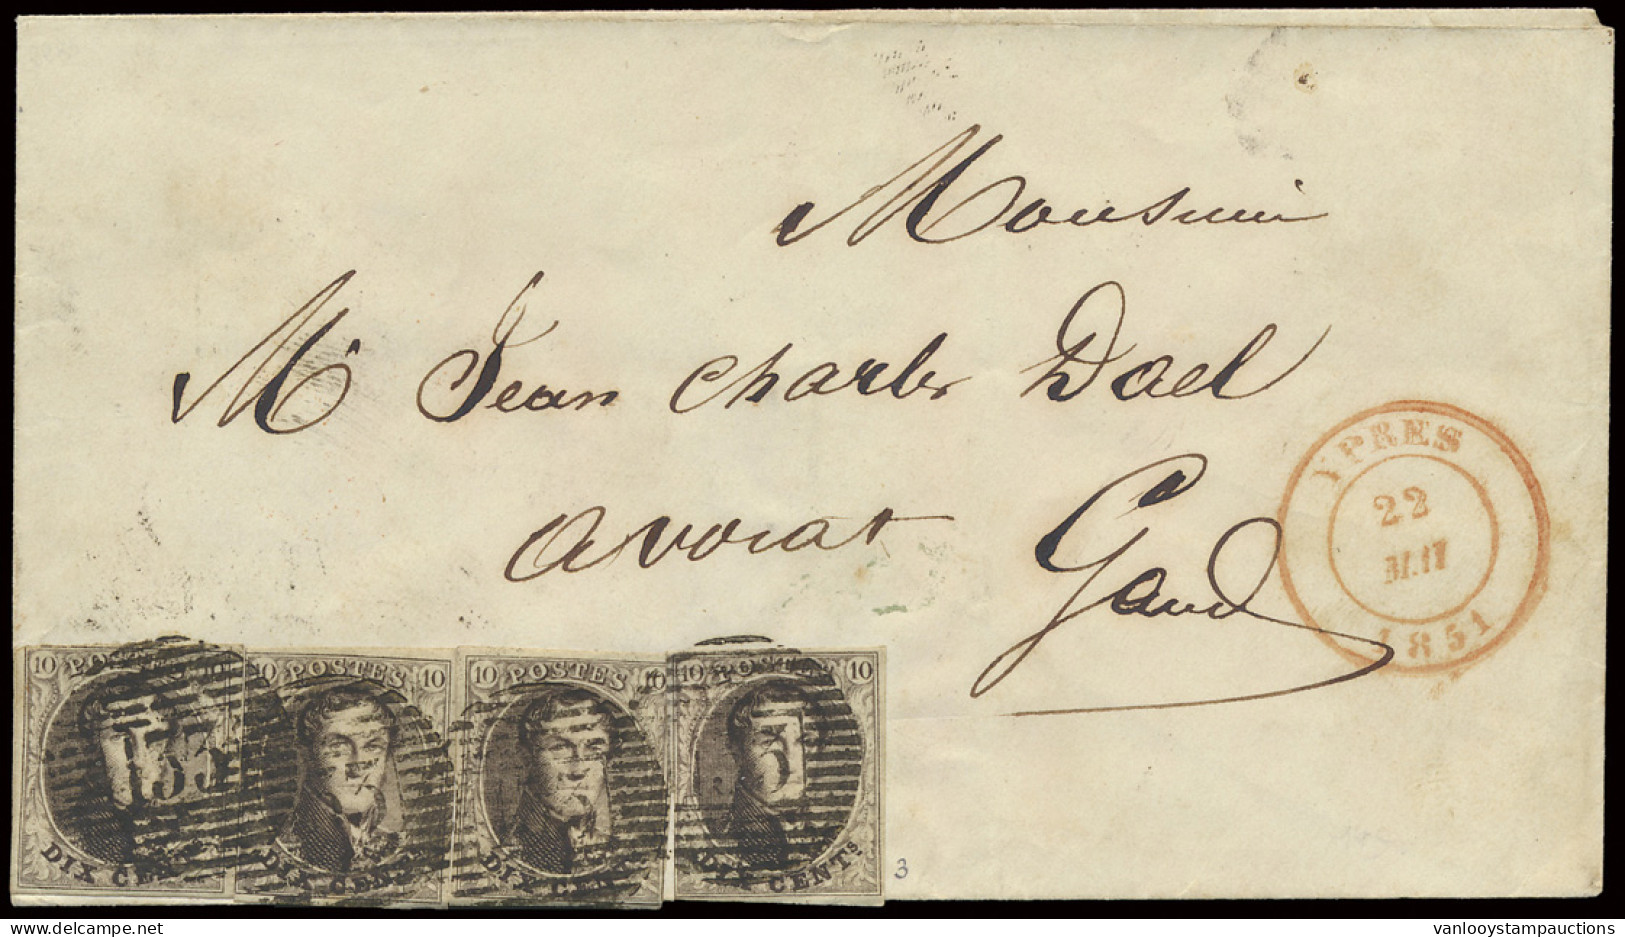 Monsieur
Mr Jean Charles Dael
avocat Gand
YPRES
22
MAI
1851
10 POSTES
133
DIX CENTs
POSTES 10
DIX CENTs
10 POSTES 10
DIX CENTs
10 POSTES 10
DIX CENTs
3
vanlooystampauctions